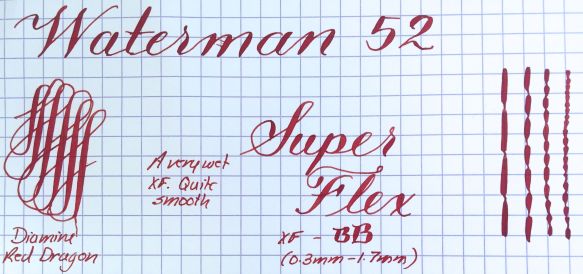 Waterman 52
A very wet
XF. Quite
smooth
Super
Flex
XF - BB
(0.3mm-1.7mm)
Diamine
Red Dragon